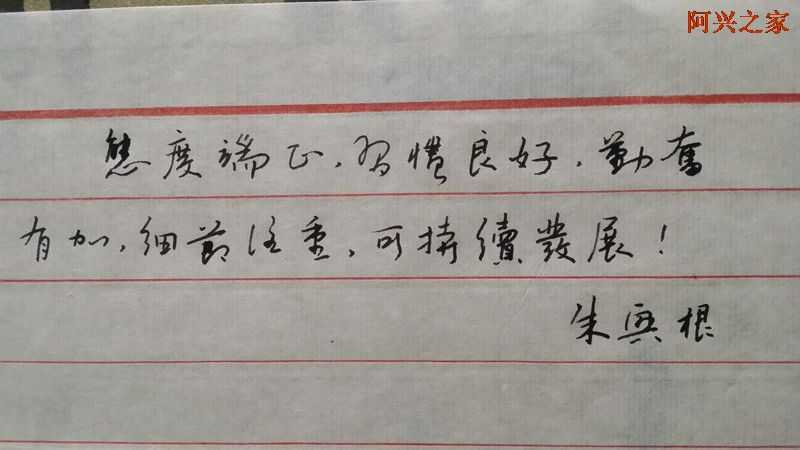 阿兴之家
態度端正，習慣良好，勤奮
有加，細節注重，可持續發展！
朱興根